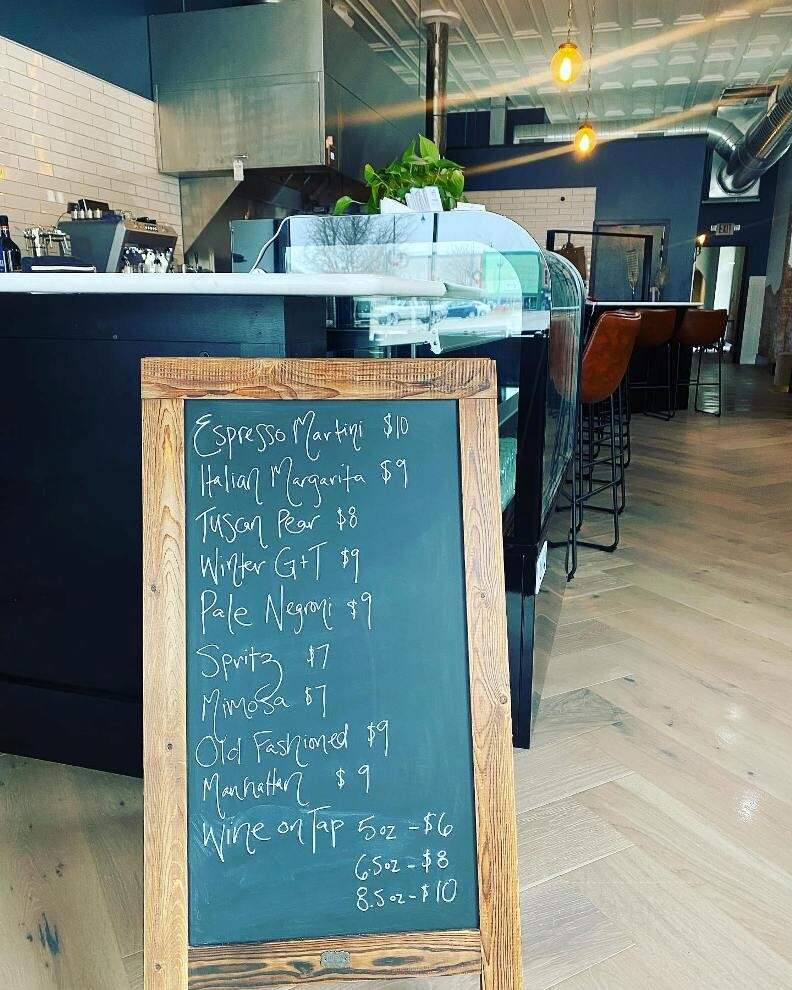 Espresso Martini $10
Italian Margarita $9
Tuscan Pear $8
Winter G+T $9
Pale Negroni $9
Spritz $7
Mimosa $7
Old Fashioned $9
Manhattan $9
Wine on Tap 5oz - $6
6.5oz - $8
8.5oz - $10
EXIT